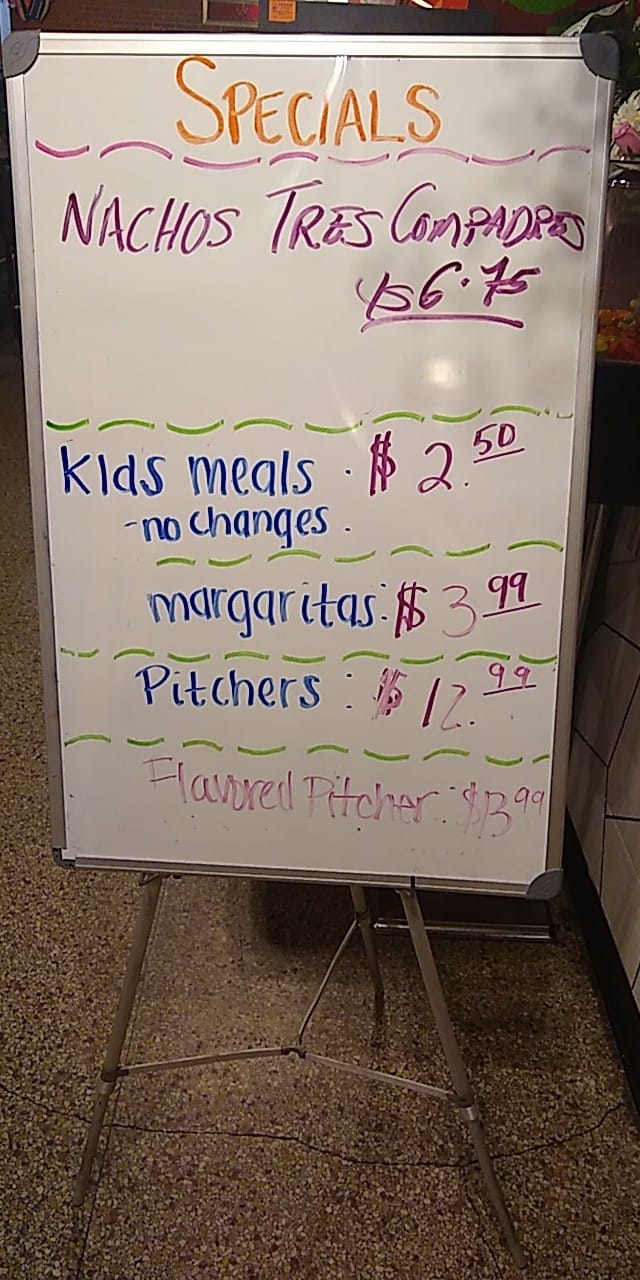 SPECIALS
NACHOS TRES COMPADRES
$6.75
KIds meals . $2.50
-no changes .
margaritas: $3 99
Pitchers : $12.99
Flavored Pitcher: $13 99